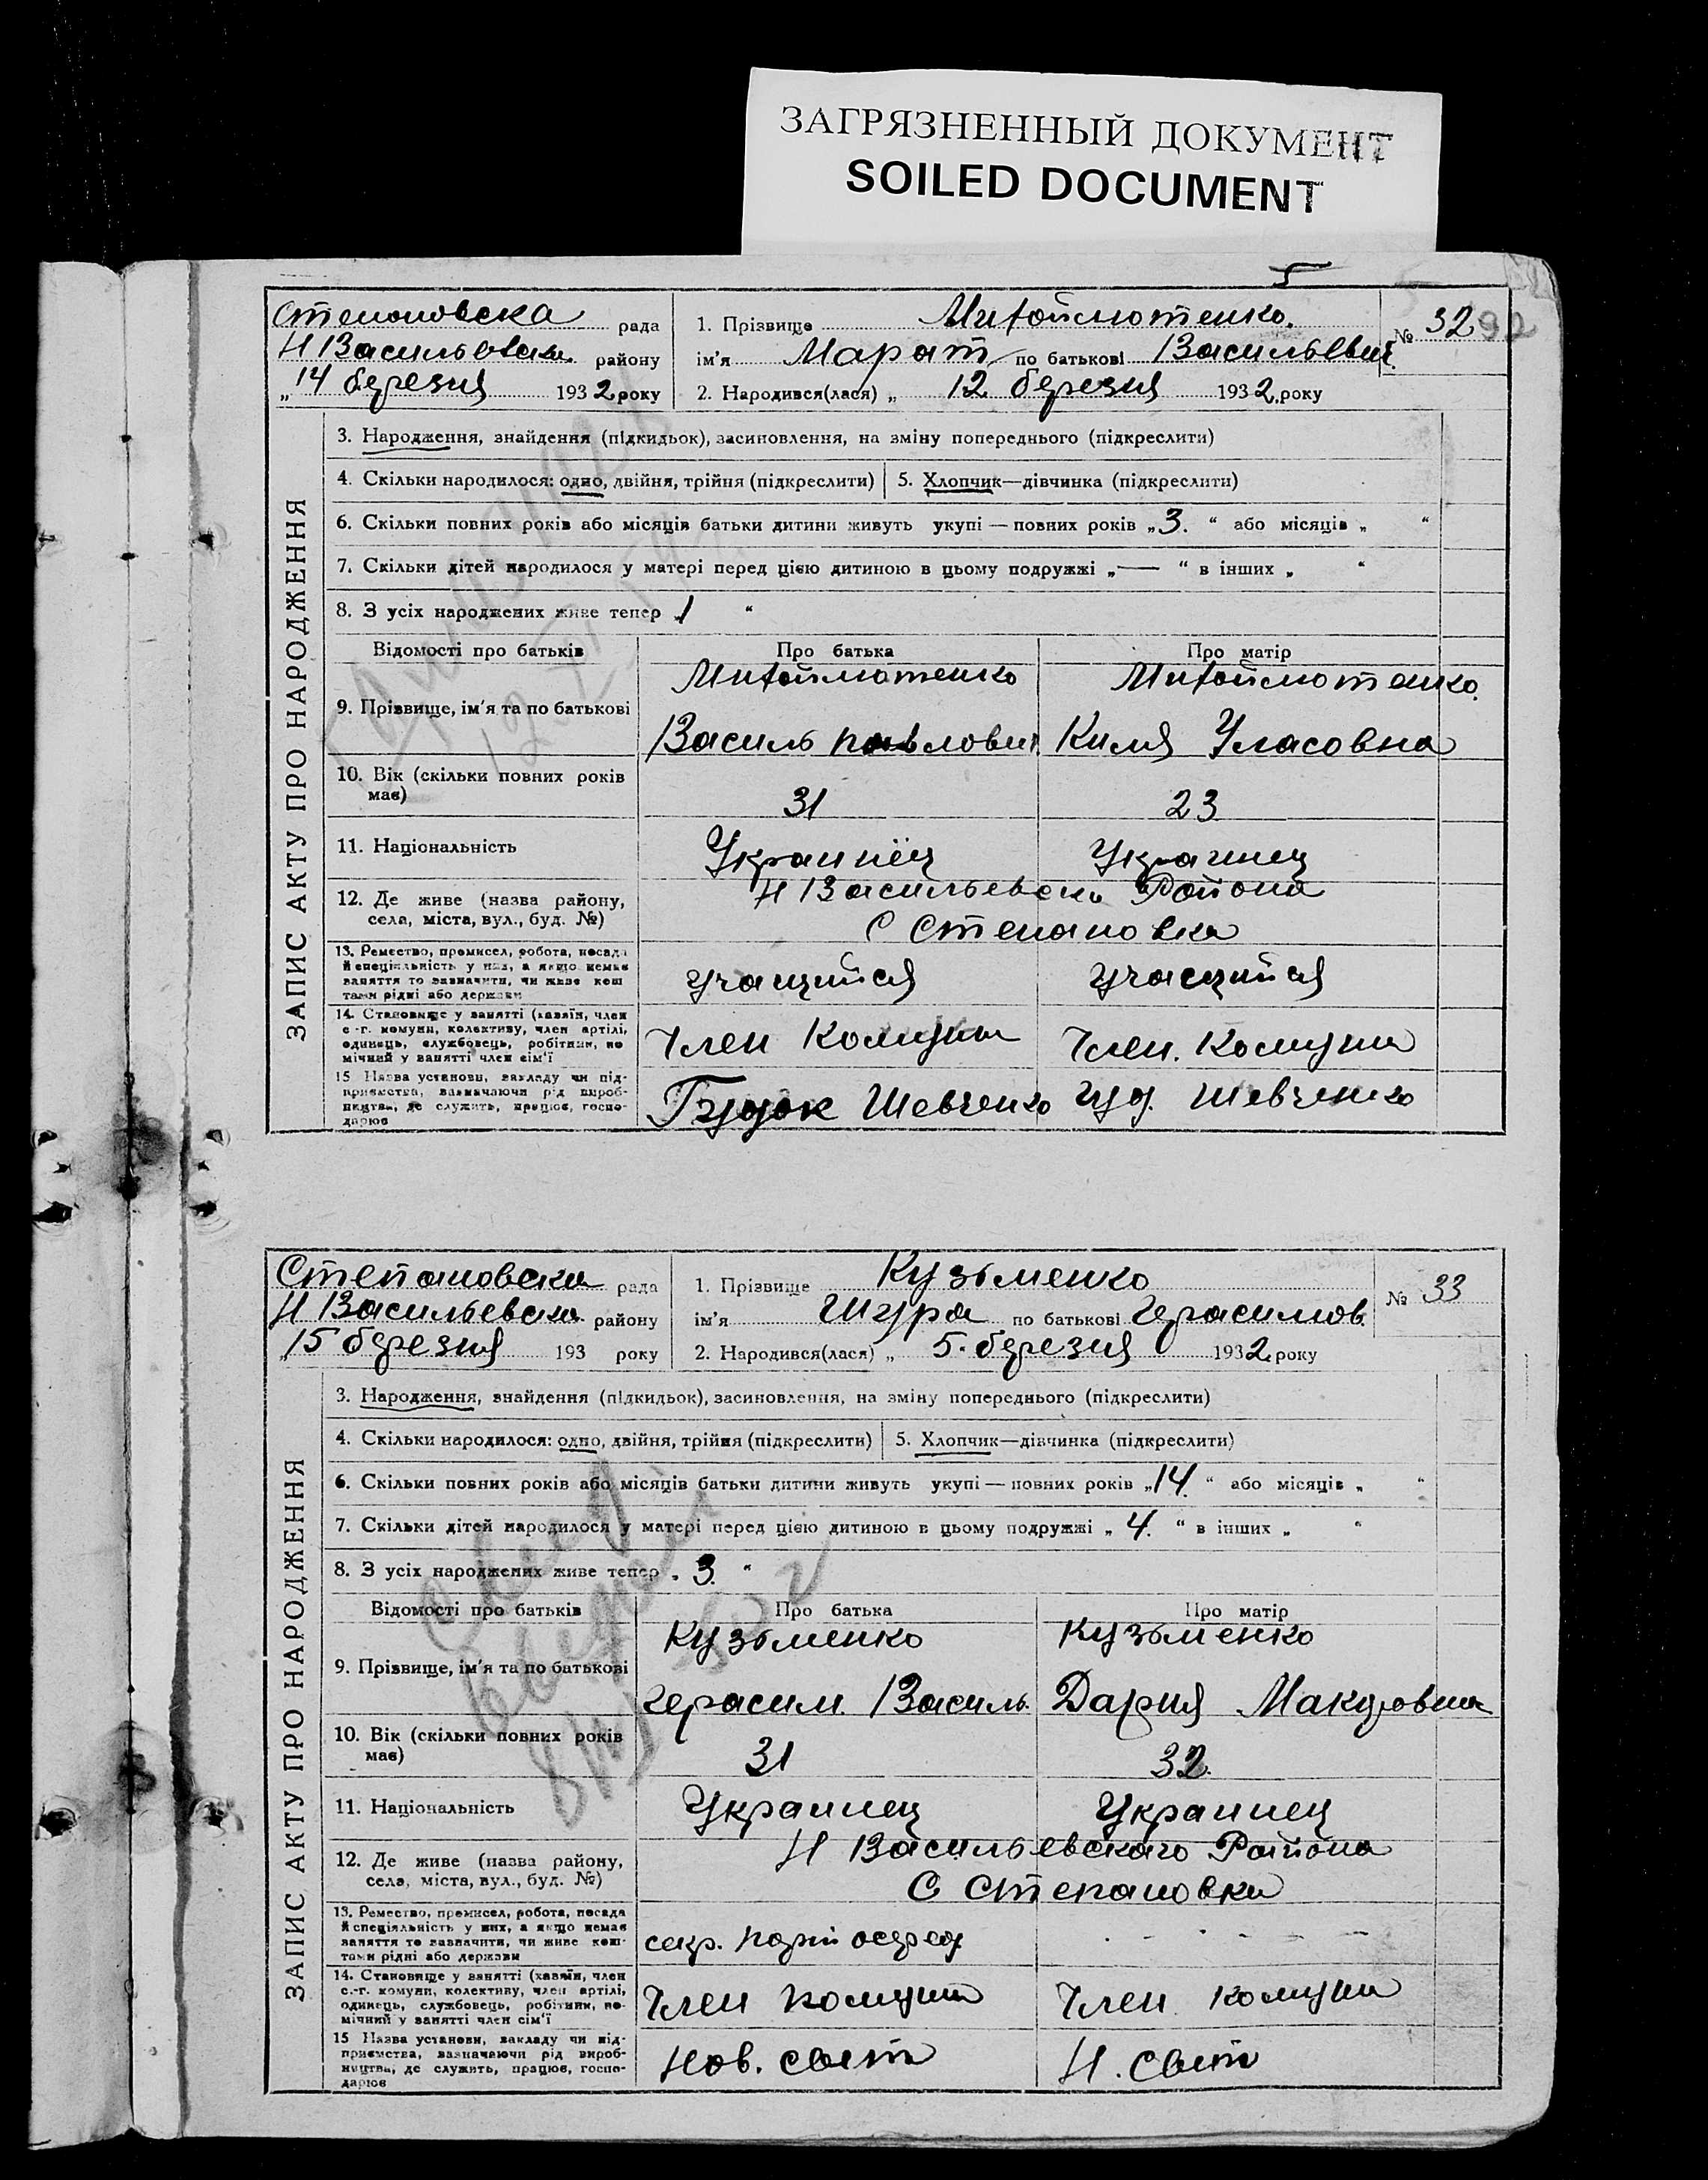 ЗАГРЯЗНЕННЫЙ ДОКУМЕНТ
SOILED DOCUMENT
5
Степоновска рада
Н Васильевски району
„14 березня 1932 року
1. Прізвище
ім'я Марат по батькові Васильевич
2. Народився(лася) „ 12 березня 1932 року
№ 32
ЗАПИС АКТУ ПРО НАРОДЖЕННЯ
3. Народження, знайдення (підкидьок), засиновлення, на зміну попереднього (підкреслити)
4. Скільки народилося: одно, двійня, трійня (підкреслити)
5. Хлопчик—дівчинка (підкреслити)
6. Скільки повних років або місяців батьки дитини живуть укупі — повних років „3. “ або місяців „ “
7. Скільки дітей народилося у матері перед цією дитиною в цьому подружжі „— “ в інших „ “
8. З усіх народжених живе тепер „1 “
Відомості про батьків Про батька Про матір
9. Прізвище, ім'я та по батькові
Василь павлович Киля Уласовна
10. Вік (скільки повних років має)
31 23
11. Національність
Украинец Украинец
12. Де живе (назва району, села, міста, вул., буд. №)
Н Васильевски Района
С Степановка
13. Ремество, промисел, робота, посада
й спеціяльність у них, а якщо немає
заняття то зазначити, чи живе кош
тами рідні або держави
учащийся учащийся
14. Становище у занятті (хазяїн, член
с.-г. комуни, колективу, член артілі,
одинець, службовець, робітник, по
мічний у занятті член сім'ї
Член Комуни Член. Комуни
15 Назва установи, закладу чи під-
приємства, зазначаючи рід вироб-
ництва, де служить, працює, госпо-
дарює
Шевченко Шевченко
Степановска рада
Н Васильевска району
„15 березня 193 року
1. Прізвище Кузьменко
ім'я Шура по батькові Герасимов.
2. Народився(лася) „ 5. березня 1932 року
№ 33
ЗАПИС АКТУ ПРО НАРОДЖЕННЯ
3. Народження, знайдення (підкидьок), засиновлення, на зміну попереднього (підкреслити)
4. Скільки народилося: одно, двійня, трійня (підкреслити)
5. Хлопчик—дівчинка (підкреслити)
6. Скільки повних років або місяців батьки дитини живуть укупі — повних років „14. “ або місяців „ “
7. Скільки дітей народилося у матері перед цією дитиною в цьому подружжі „ 4. “ в інших „ “
8. З усіх народжених живе тепер „ 3. “
Відомості про батьків Про батька Про матір
Кузьменко Кузьменко
9. Прізвище, ім'я та по батькові
Герасим Василь. Дария
10. Вік (скільки повних років має)
31 32.
11. Національність
Украинец Украинец
12. Де живе (назва району, села, міста, вул., буд. №)
Н Васильевского Района
С Степановки
13. Ремество, промисел, робота, посада
й спеціяльність у них, а якщо немає
заняття то зазначити, чи живе кош-
тами рідні або держави
секр. парт осеред.
14. Становище у занятті (хазяїн, член
с.-г. комуни, колективу, член артілі,
одинець, службовець, робітник, по-
мічний у занятті член сім'ї
Член комуни Член комуни
15 Назва установи, закладу чи під-
приємства, зазначаючи рід вироб-
ництва, де служить, працює, госпо-
дарює
Нов. свит Н. Свит